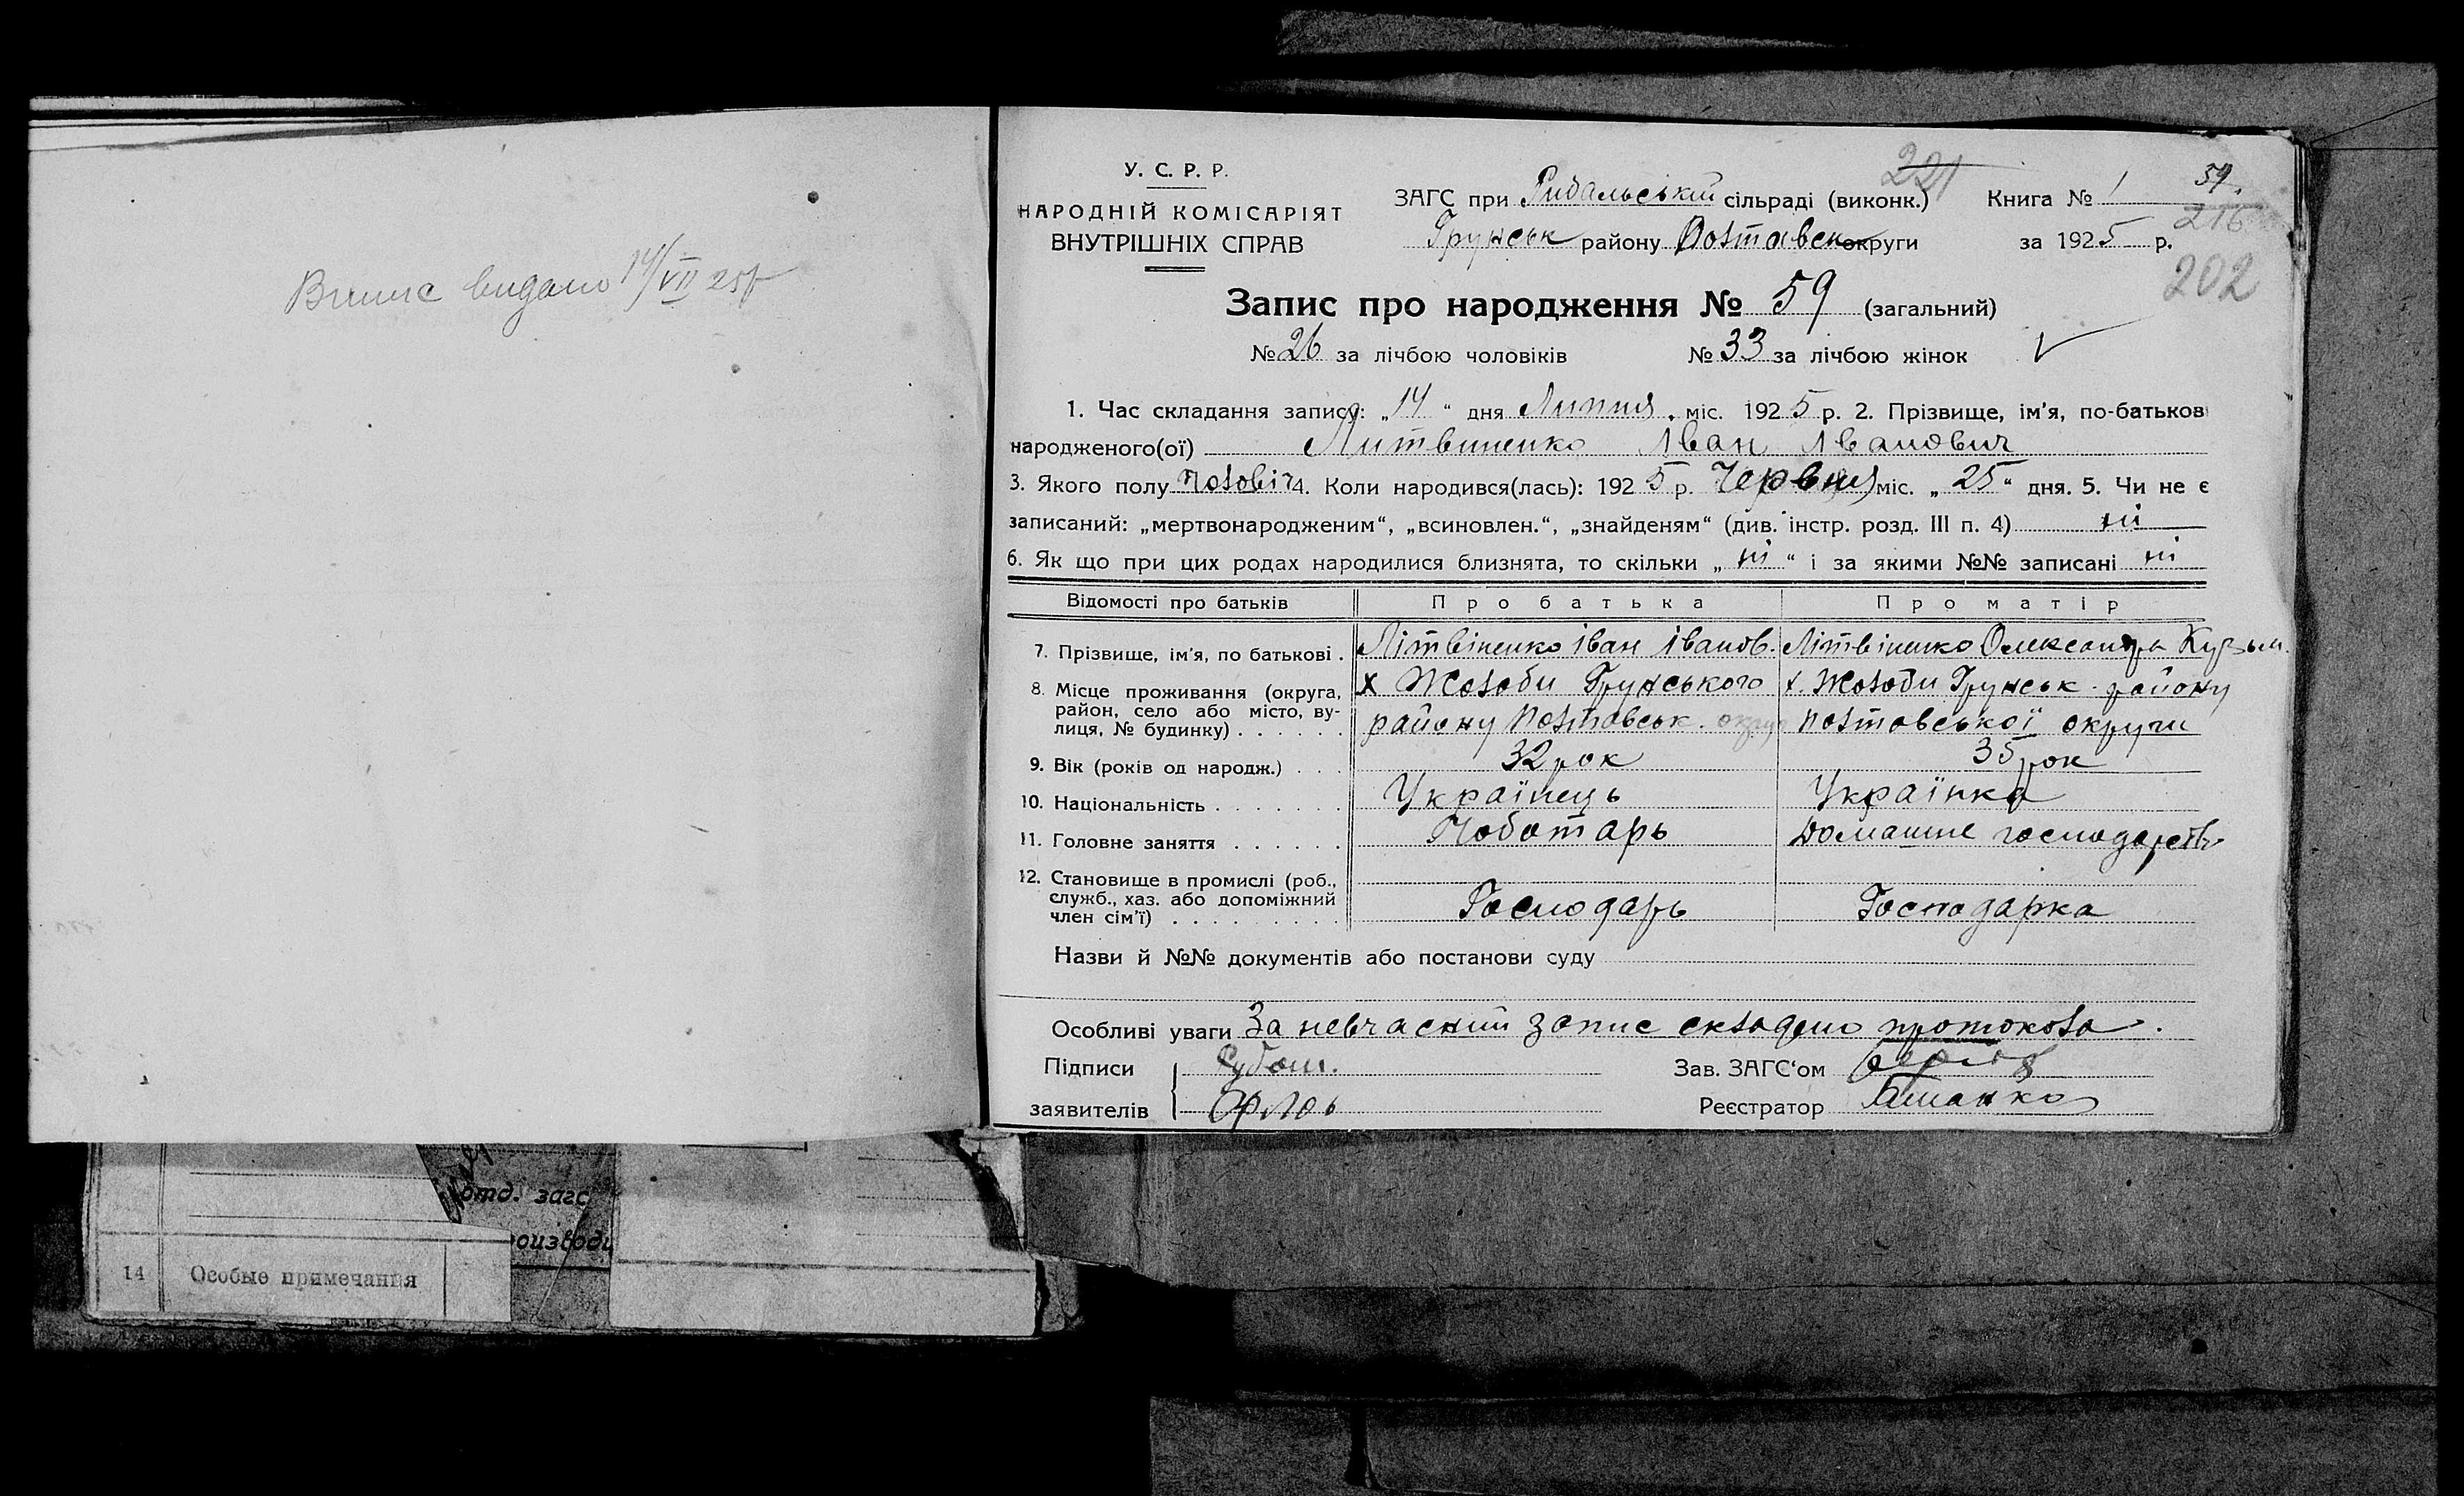 Випис видано 14/VII 25 р
У. С. Р. Р.
НАРОДНІЙ КОМІСАРІЯТ
ВНУТРІШНІХ СПРАВ
221
ЗАГС при Рибальській сільраді (виконк.)
Грунськ району Полтавськ округи
Книга № 1
59.
216
за 1925 р.
202
Запис про народження № 59 (загальний)
№ 26 за лічбою чоловіків № 33 за лічбою жінок
1. Час складання запису: „14“ дня Липня міс. 1925 р. 2. Прізвище, ім'я, по-батькові
народженого(ої) Литвиненко Іван Іванович
3. Якого полу чоловіч 4. Коли народився(лась): 1925 р. Червня міс. „25“ дня. 5. Чи не є
записаний: „мертвонародженим“, „всиновлен.“, „знайденям“ (див. інстр. розд. III п. 4) ні
6. Як що при цих родах народилися близнята, то скільки „ні“ і за якими №№ записані ні
Відомості про батьків Про батька Про матір
7. Прізвище, ім'я, по батькові . Літвіненко Іван Іванов. Літвіненко Олександра Кузьм.
8. Місце проживання (округа, район, село або місто, вулиця, № будинку) . . . . . .
х Жолоби Грунського
району Полтавськ. округ
х. Жолоби Грунськ. району
полтовської округи
9. Вік (років од народж.) . . . 32 рок 35 рок
10. Національність . . . . . . . Українець Українка
11. Головне заняття . . . . . . Чоботарь Домашнє господарств
12. Становище в промислі (роб., служб., хаз. або допоміжний член сім'ї) . . . . . . . . . Господарь Господарка
Назви й №№ документів або постанови суду
Особливі уваги За невчасний запис складено протокола.
Підписи
заявителів
Орлов
Зав. ЗАГС'ом
Реєстратор
отд. загс
14 Особые примечания